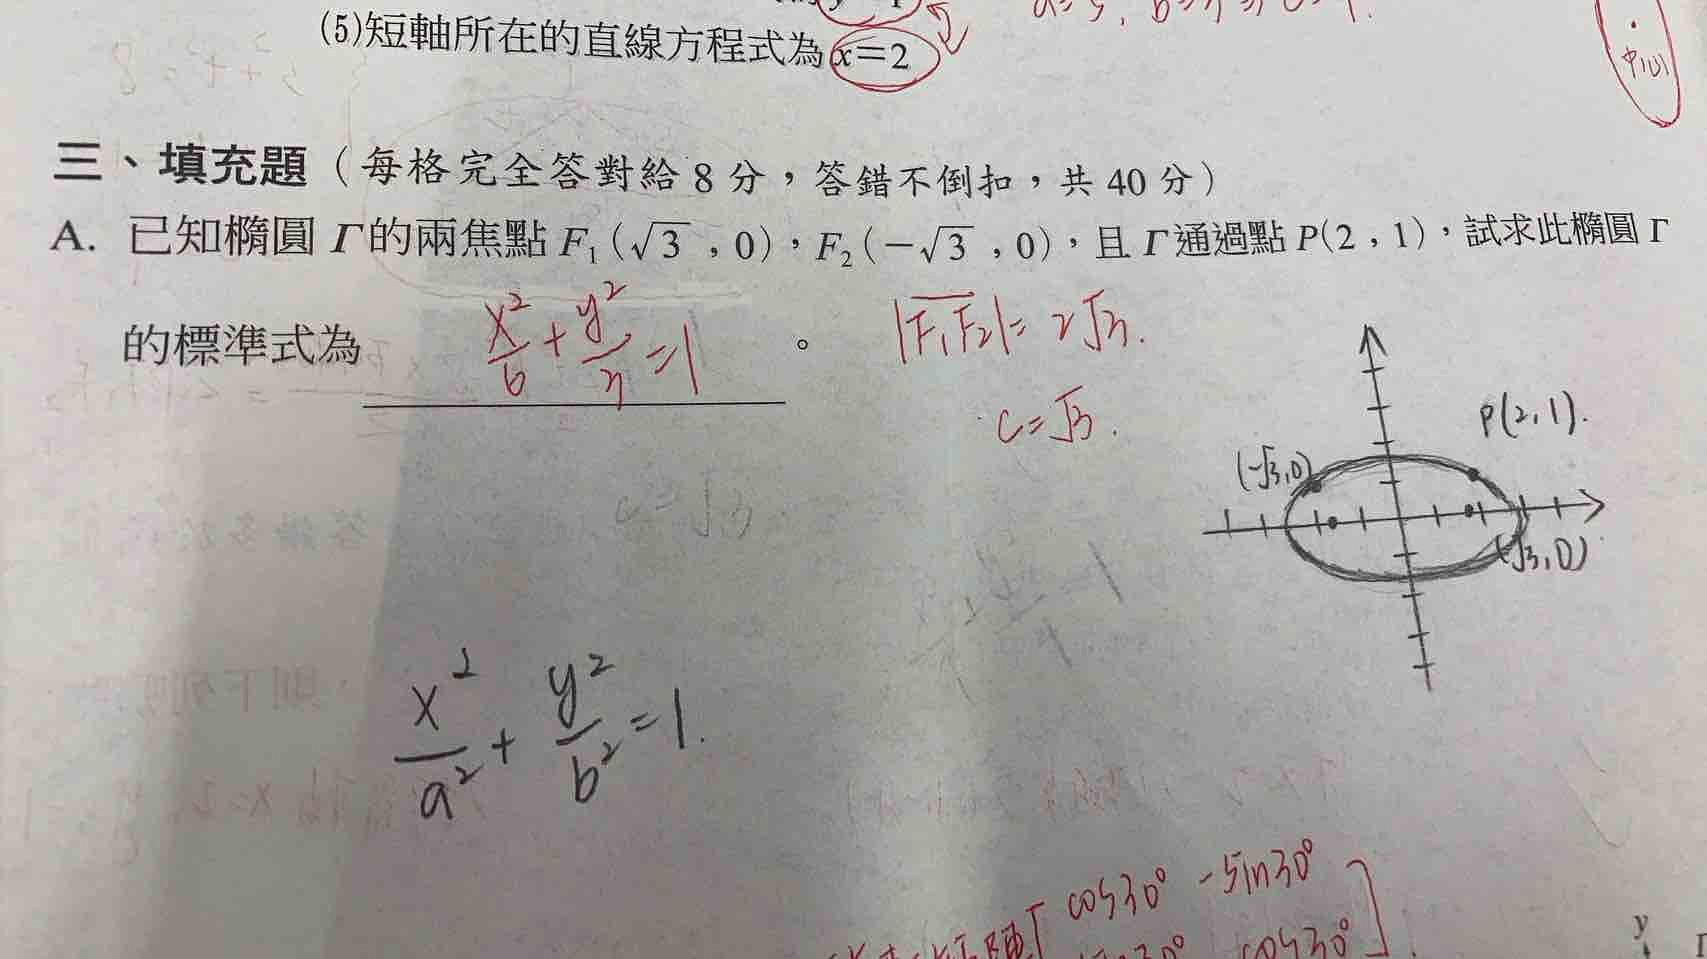 (5)短軸所在的直線方程式為 x=2
中心
三、填充題（每格完全答對給 8 分，答錯不倒扣，共 40 分）
A. 已知橢圓 Γ 的兩焦點 F₁(√3，0)，F₂(−√3，0)，且 Γ 通過點 P(2，1)，試求此橢圓 Γ
的標準式為 x²/6 + y²/3 = 1。
|F₁F₂| = 2√3.
c=√3.
P(2,1).
(-√3,0)
(√3,0)
c=√3
x²/a² + y²/b² = 1.
cos30° -sin30°
cos30°
y